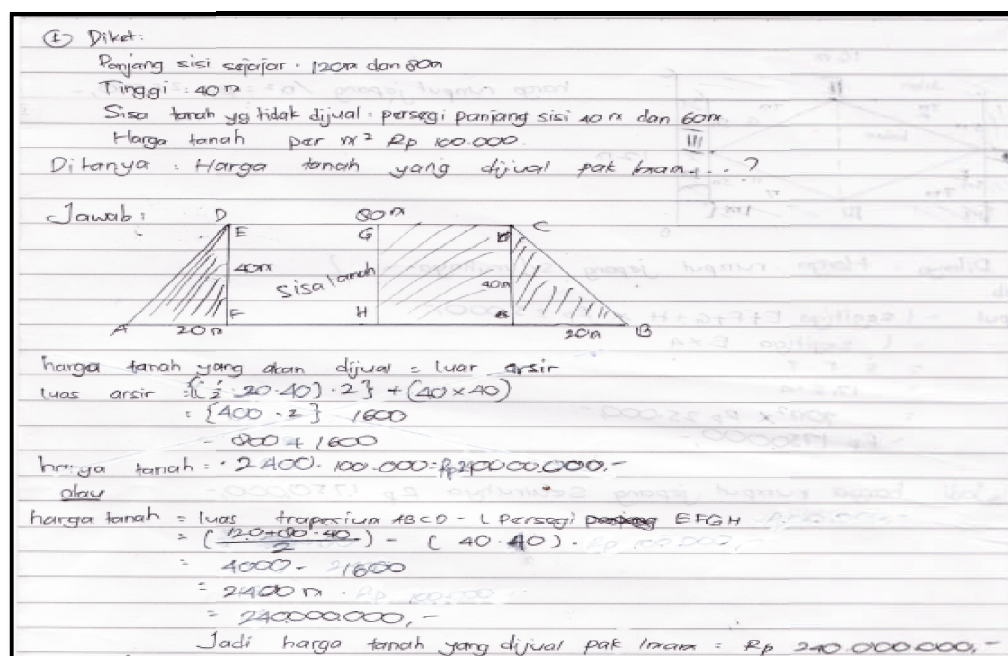 ① Diket:
Panjang sisi sejajar . 120m dan 80m
Tinggi : 40 m
Sisa tanah yg tidak dijual . persegi panjang sisi 40 m dan 60m
Harga tanah per m² Rp 100.000
Ditanya : Harga tanah yang dijual pak Imam ... ?
Jawab :
D 80m C
E G
40m sisa tanah 40m
A F H B
20m 20m
harga tanah yang akan dijual = luar arsir
luas arsir = {(½ . 20 . 40) . 2} + (40 x 40)
= {400 . 2} 1600
= 800 + 1600
harga tanah = . 2400 . 100.000 = Rp 240000.000,-
atau
harga tanah = luas trapesium ABCD - L Persegi EFGH
= (120+80 . 40 / 2) - ( 40 . 40 ) .
= 4000 - 1600
= 2400 m
= 240.000.000,-
Jadi harga tanah yang dijual pak Imam = Rp 240.000.000,-